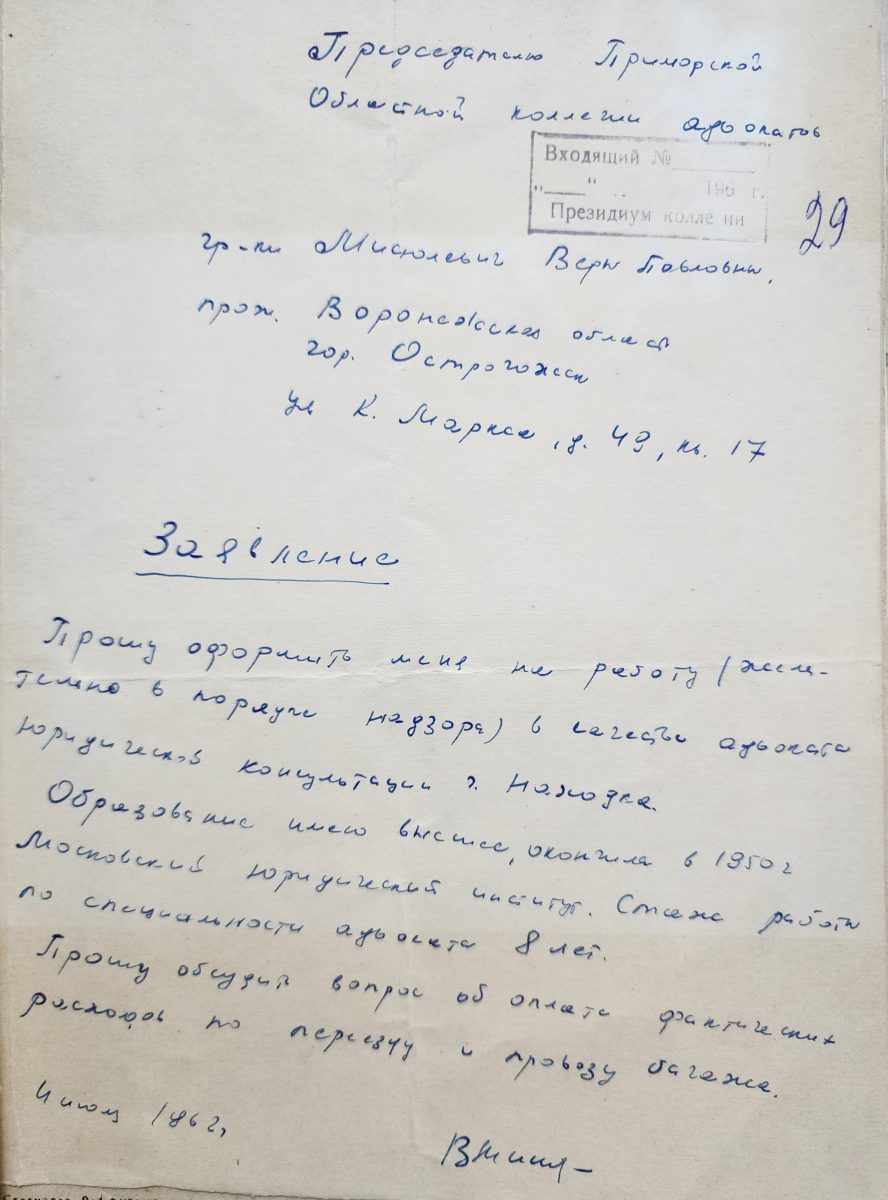 Председателю Приморской
Областной коллегии адвокатов
Входящий №
"____" 196 г.
Президиум колле ии
29
гр-ки Мисюлевич Веры Павловны,
прож. Воронежская область
гор. Острогожск
ул К. Маркса, д. 49, кв. 17
Заявление
Прошу оформить меня на работу (жела-
тельно в порядке надзора) в качестве адвоката
юридической консультации г. Находка.
Образование имею высшее, окончила в 1950 г
Московский юридический институт. Стаж работы
по специальности адвоката 8 лет.
Прошу обсудить вопрос об оплате фактических
расходов по переезду и провозу багажа.
1962г.